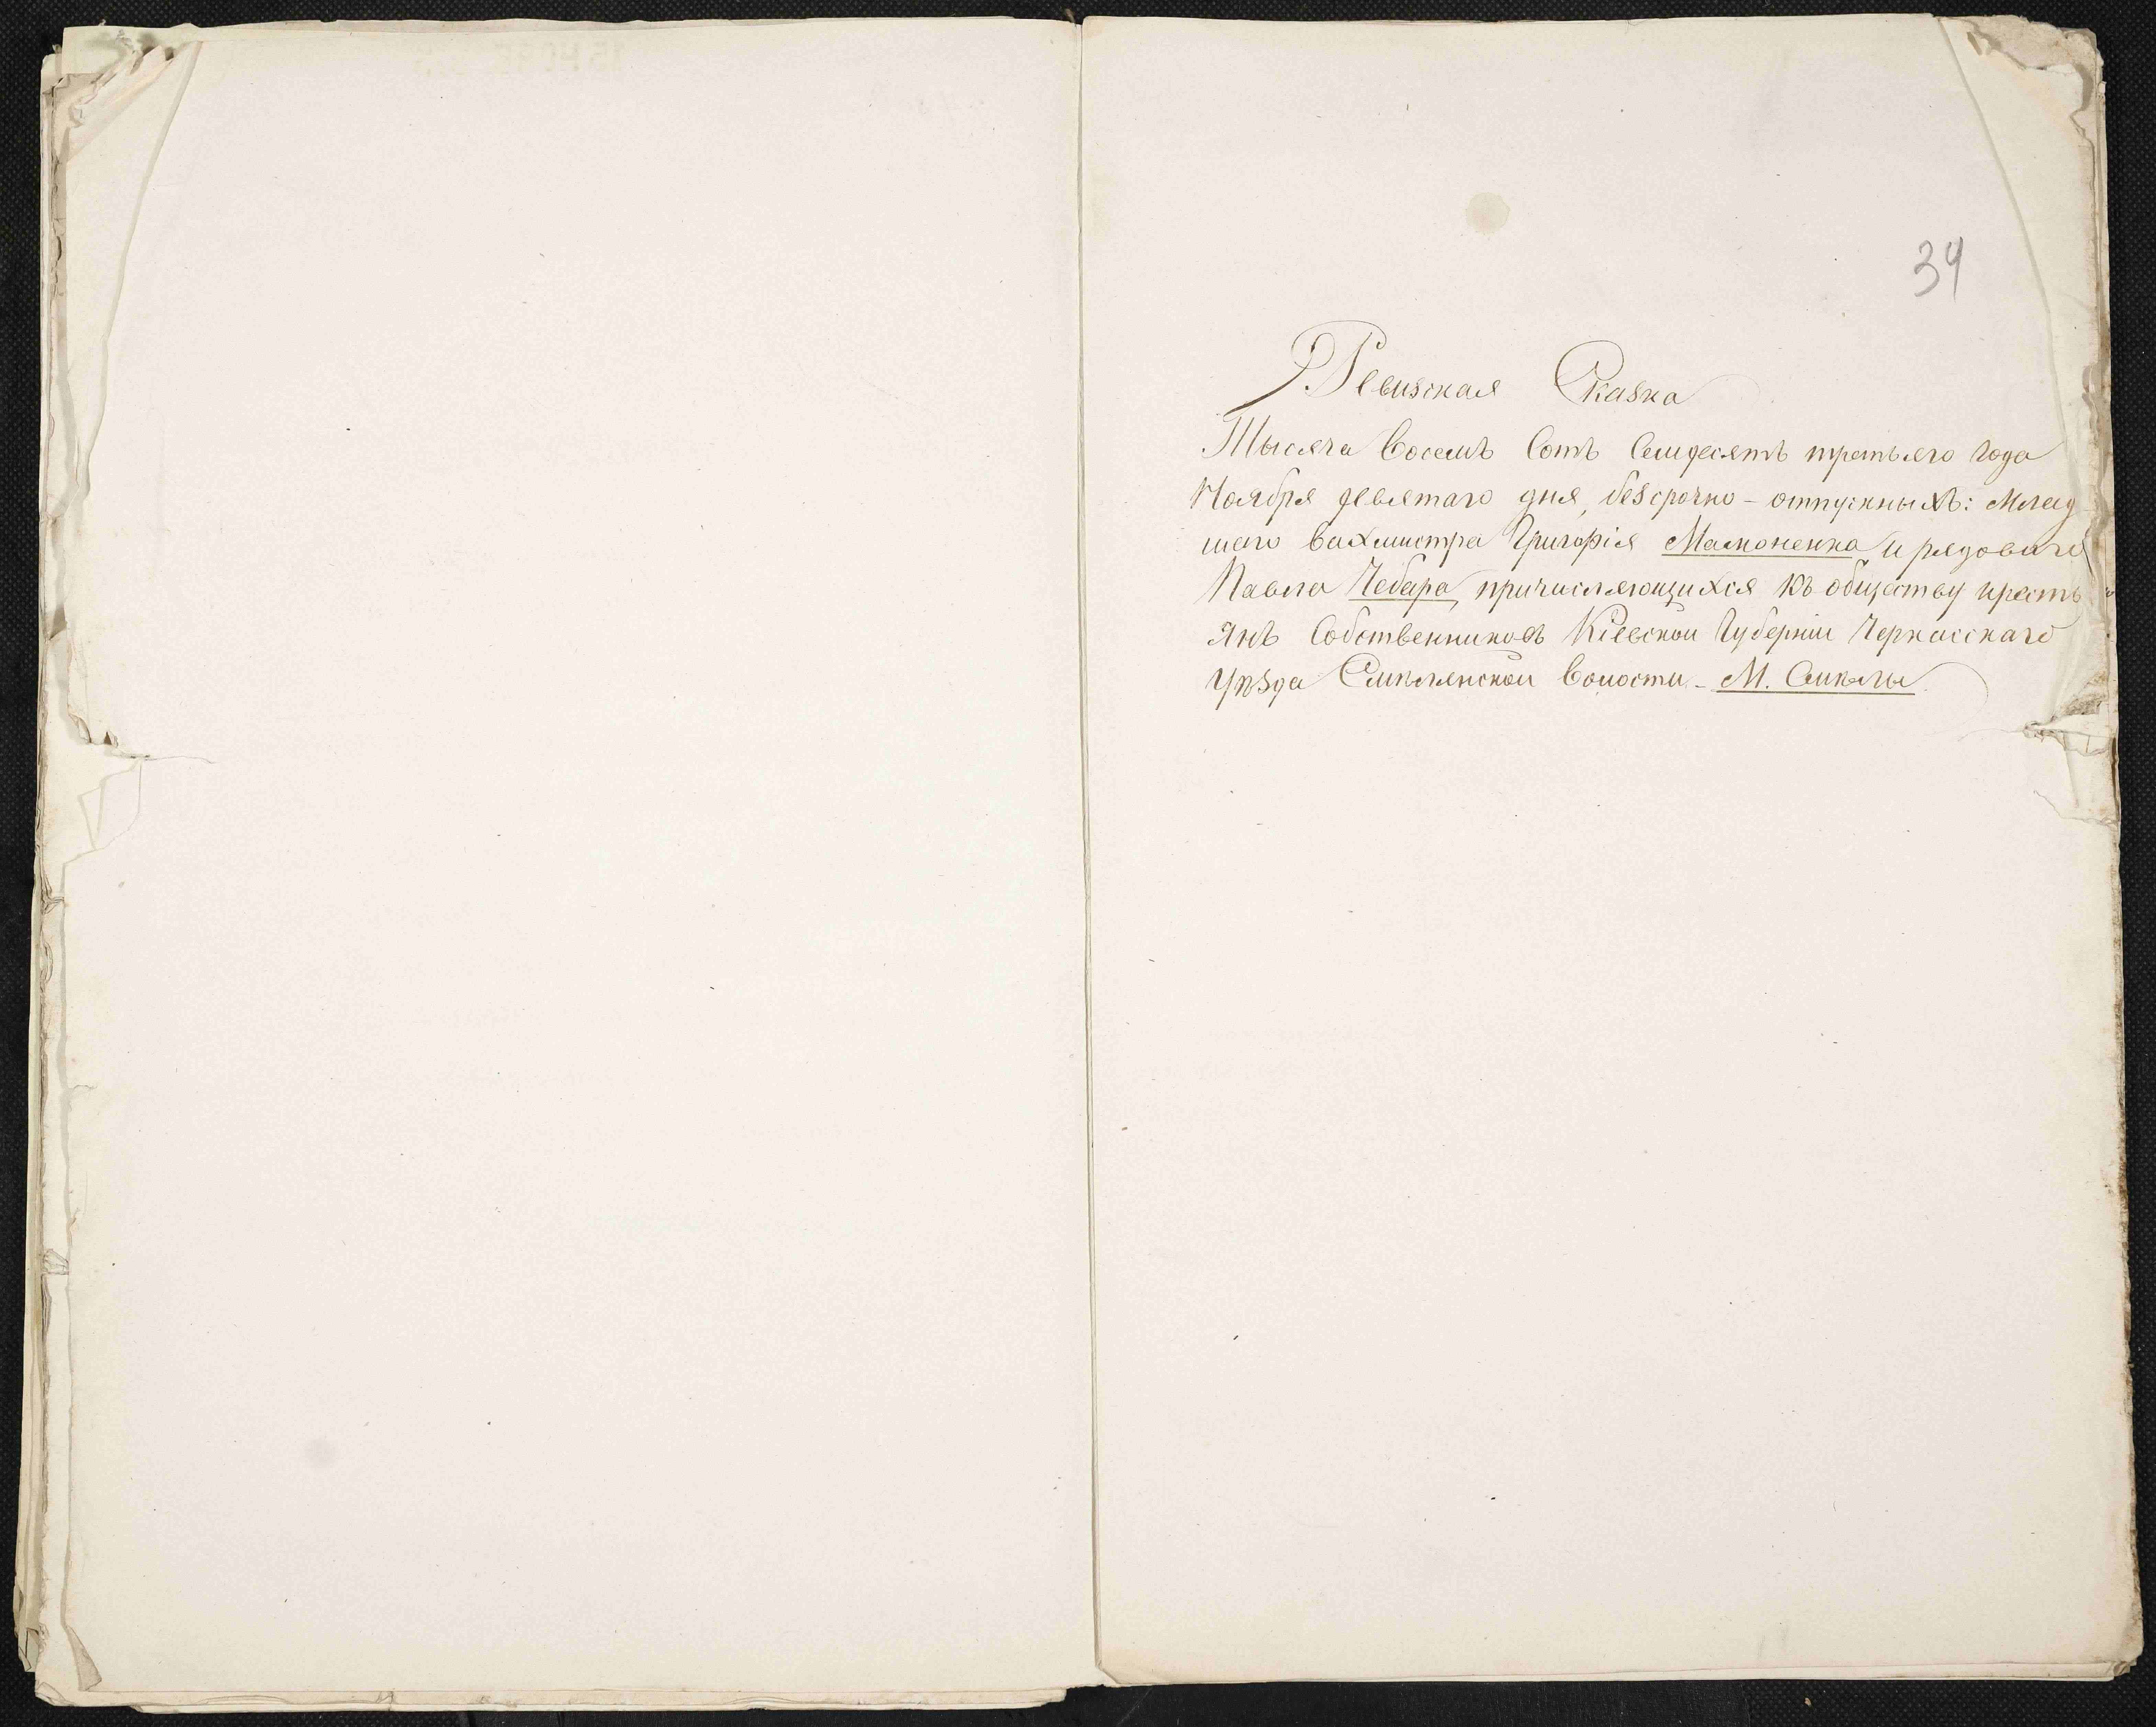 34
Ревизская Сказка
Тысяча Восемь Сотъ Семдесятъ третьяго года
Ноября девятаго дня, безсрочно-отпускныхъ: Млад-
шаго вахмистра Григорія Мамоненка и рядоваго
Павла Чебара, причисляющихся къ обществу кресть
янъ Собственниковъ Кіевской Губерніи Черкасскаго
Уѣзда Смклянской Волости - М. Смклы